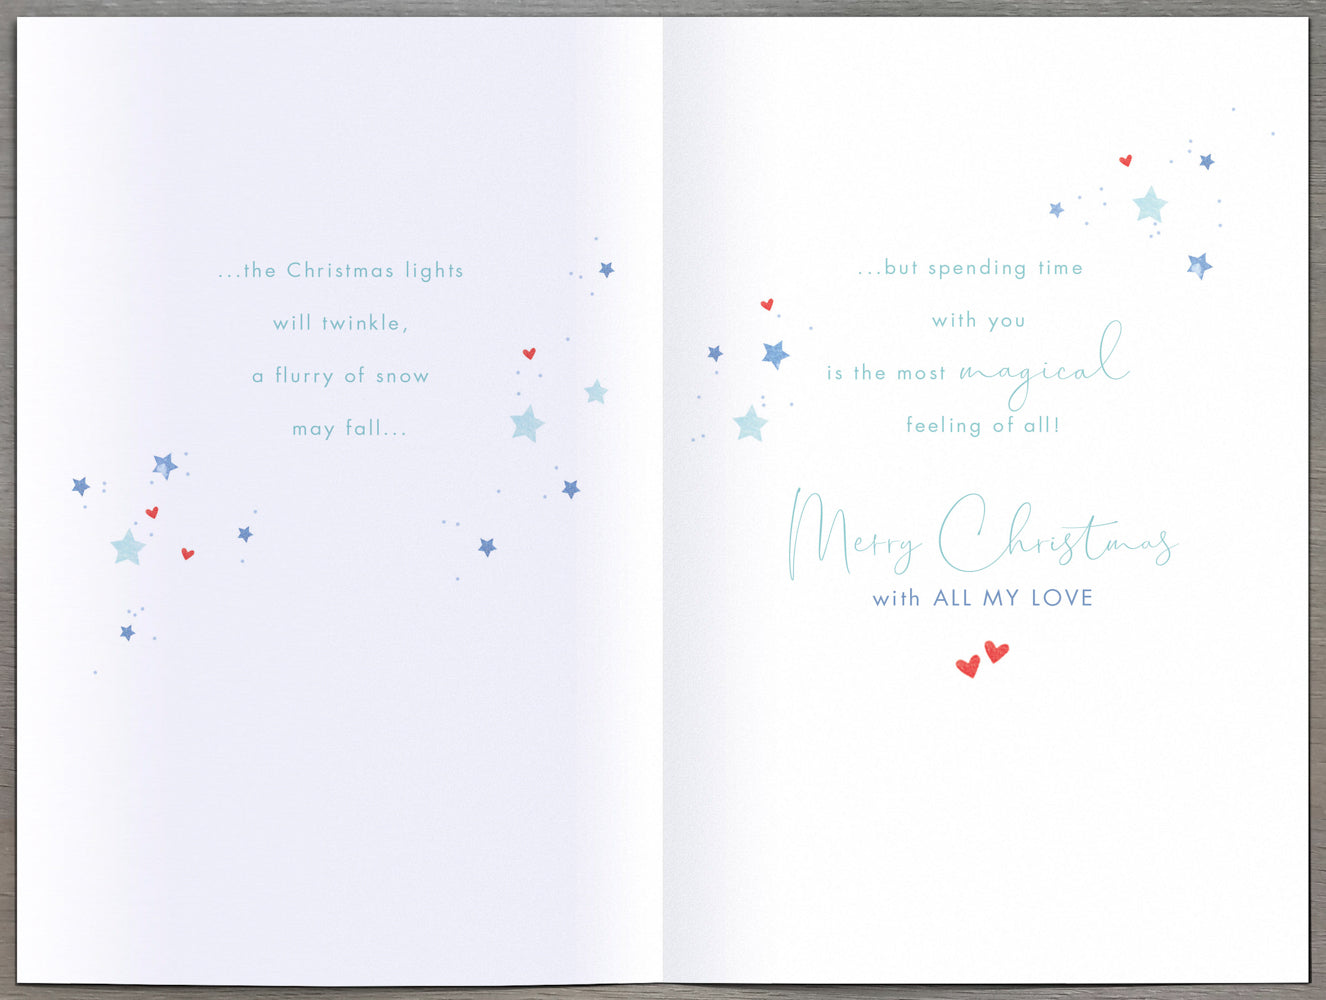 ...the Christmas lights
will twinkle,
a flurry of snow
may fall...
...but spending time
with you
is the most magical
feeling of all!
Merry Christmas
with ALL MY LOVE